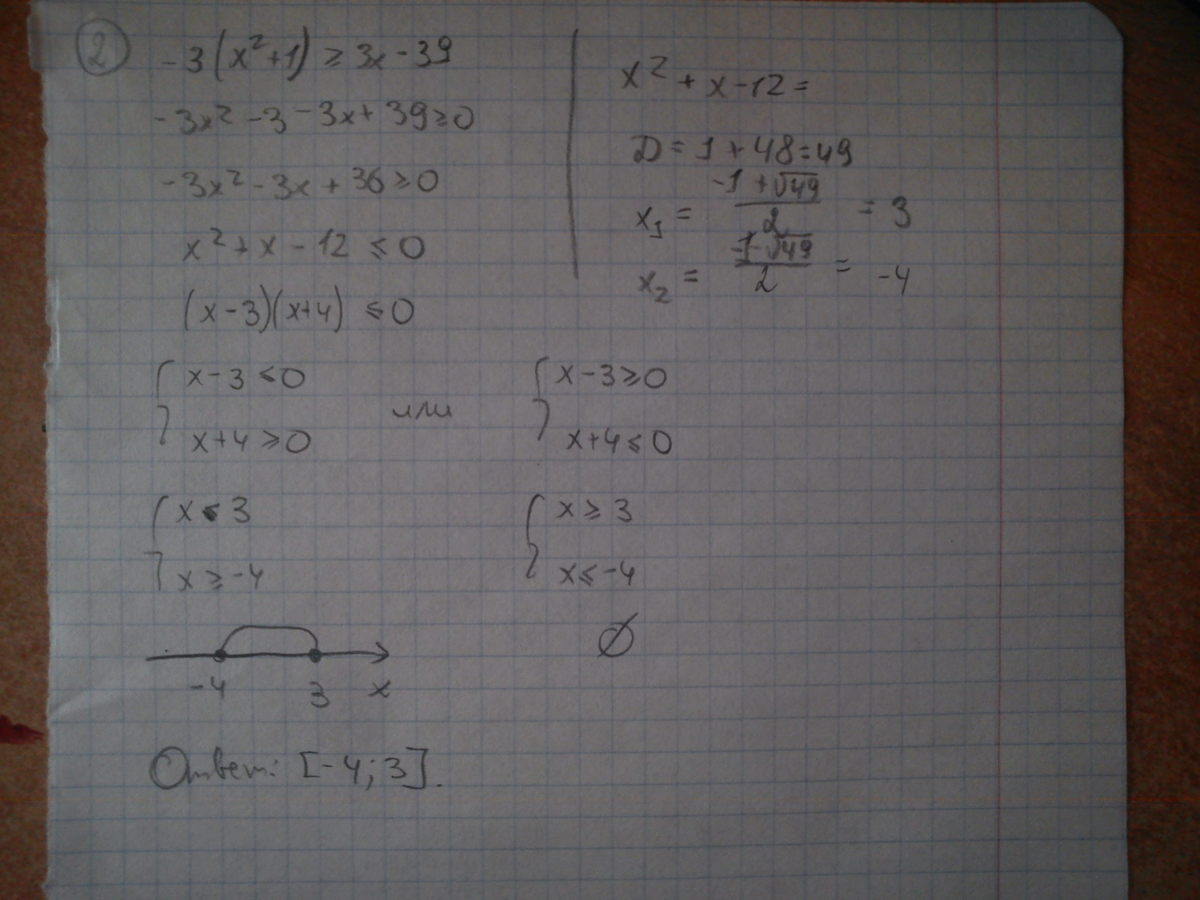 2
-3(x²+1) ≥ 3x-39
-3x²-3-3x+39≥0
-3x²-3x+36≥0
x²+x-12≤0
(x-3)(x+4) ≤0
x²+x-12=
D=1+48=49
x₁ = (-1+√49)/2 = 3
x₂ = (-1-√49)/2 = -4
{ x-3≤0 или { x-3≥0
x+4≥0 x+4≤0
{ x≤3 { x≥3
x≥-4 x≤-4
-4 3 x ∅
Ответ: [-4;3].